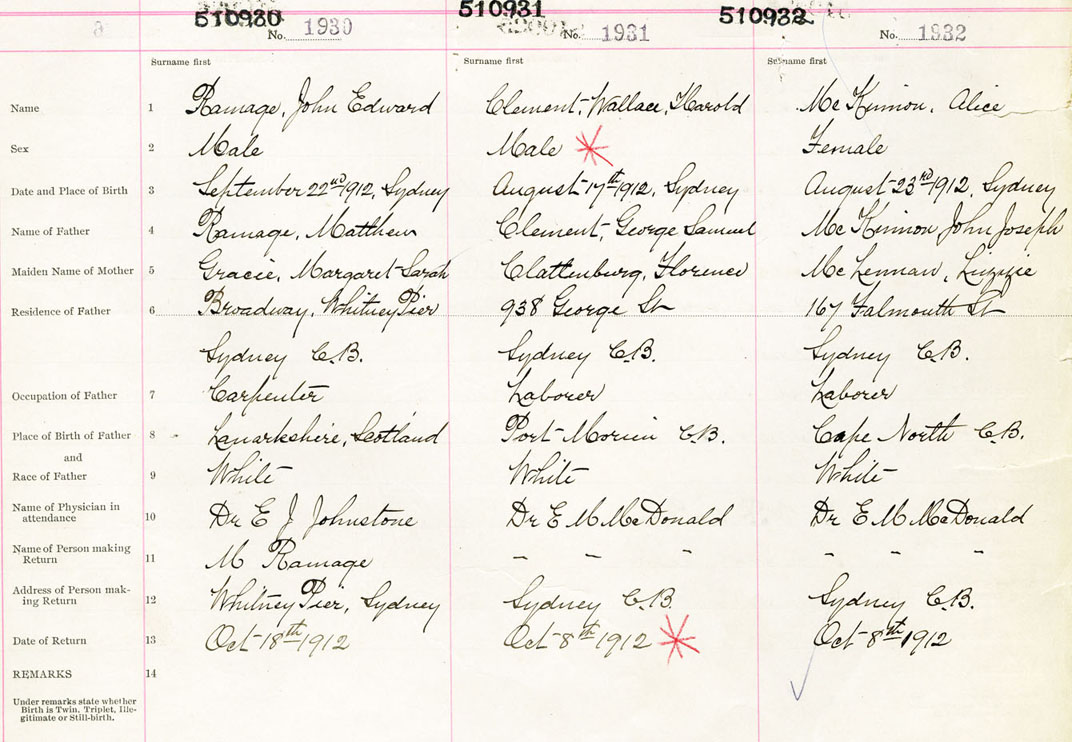 510930 510931 510932
No. 1930 No. 1931 No. 1932
Surname first Surname first Surname first
Name 1 Ramage, John Edward Clement, Wallace, Harold McKinnon, Alice
Sex 2 Male Male Female
Date and Place of Birth 3 September 22nd 1912, Sydney August 17th 1912, Sydney August 23rd 1912, Sydney
Name of Father 4 Ramage, Matthew Clement, George Samuel McKinnon John Joseph
Maiden Name of Mother 5 Gracie, Margaret Sarah Clattenburg, Florence McLennan, Lizzie
Residence of Father 6 Broadway, Whitney Pier 938 George St 167 Falmouth St
Sydney C.B. Sydney C.B. Sydney C.B.
Occupation of Father 7 Carpenter Laborer Laborer
Place of Birth of Father 8 Lanarkshire, Scotland Port Morien C.B. Cape North C.B.
and
Race of Father 9 White White White
Name of Physician in
attendance 10 Dr E J Johnstone Dr E M McDonald Dr E M McDonald
Name of Person making
Return 11 M Ramage - - - - - -
Address of Person mak-
ing Return 12 Whitney Pier, Sydney Sydney C.B. Sydney C.B.
Date of Return 13 Oct 18th 1912 Oct 8th 1912 Oct 8th 1912
REMARKS 14
Under remarks state whether
Birth is Twin, Triplet, Ille-
gitimate or Still-birth.